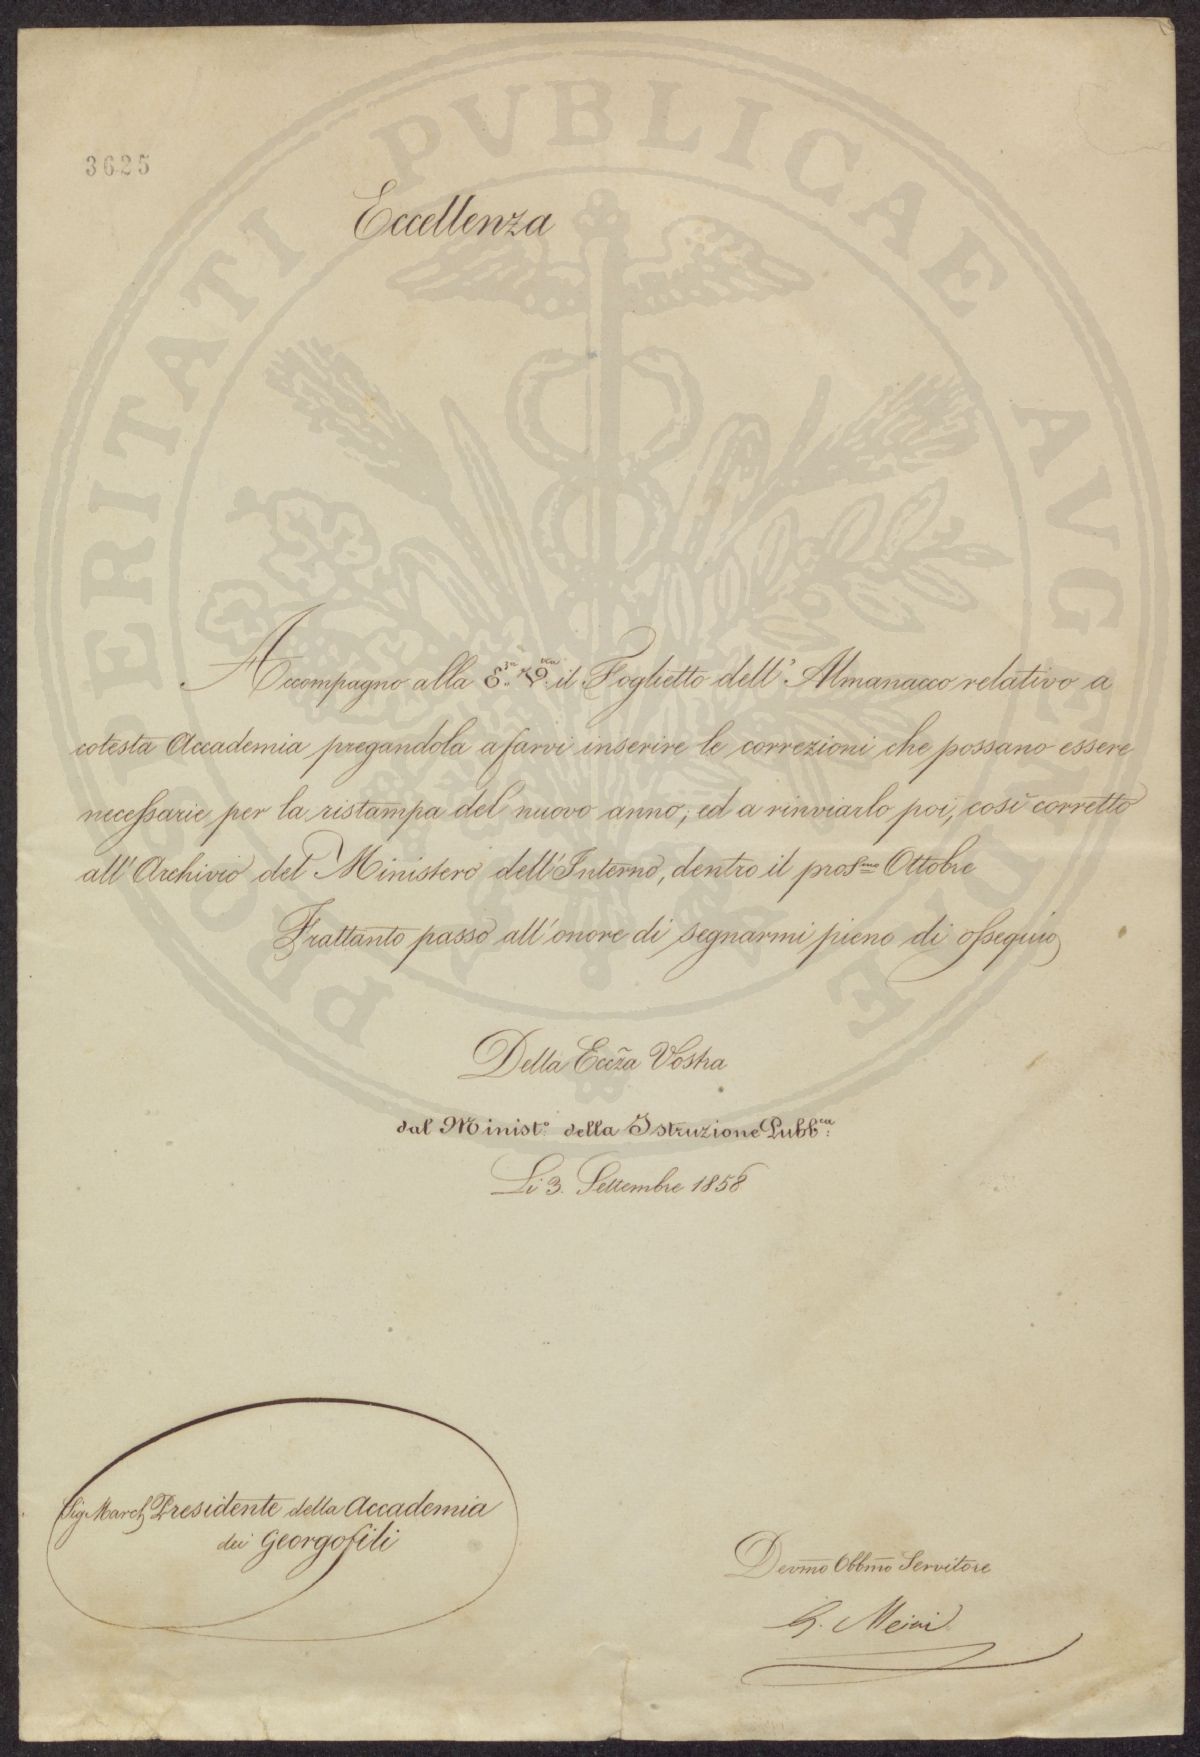 PROSPERITATI PVBLICAE AVGENDAE
3625
Eccellenza
Accompagno alla E.za V.ra il Foglietto dell' Almanacco relativo a
cotesta Accademia pregandola a farvi inserire le correzioni che possano essere
necessarie per la ristampa del nuovo anno; ed a rinviarlo poi, così corretto
all' Archivio del Ministero dell' Interno, dentro il pross.mo Ottobre
Frattanto passo all' onore di segnarmi pieno di ossequio
Della Eccza Vostra
dal Minist.o della Istruzione Pubb.ca:
Li 3. Settembre 1858
Sig. March Presidente della Accademia
dei Georgofili
Devmo Obbmo Servitore
G. Meini